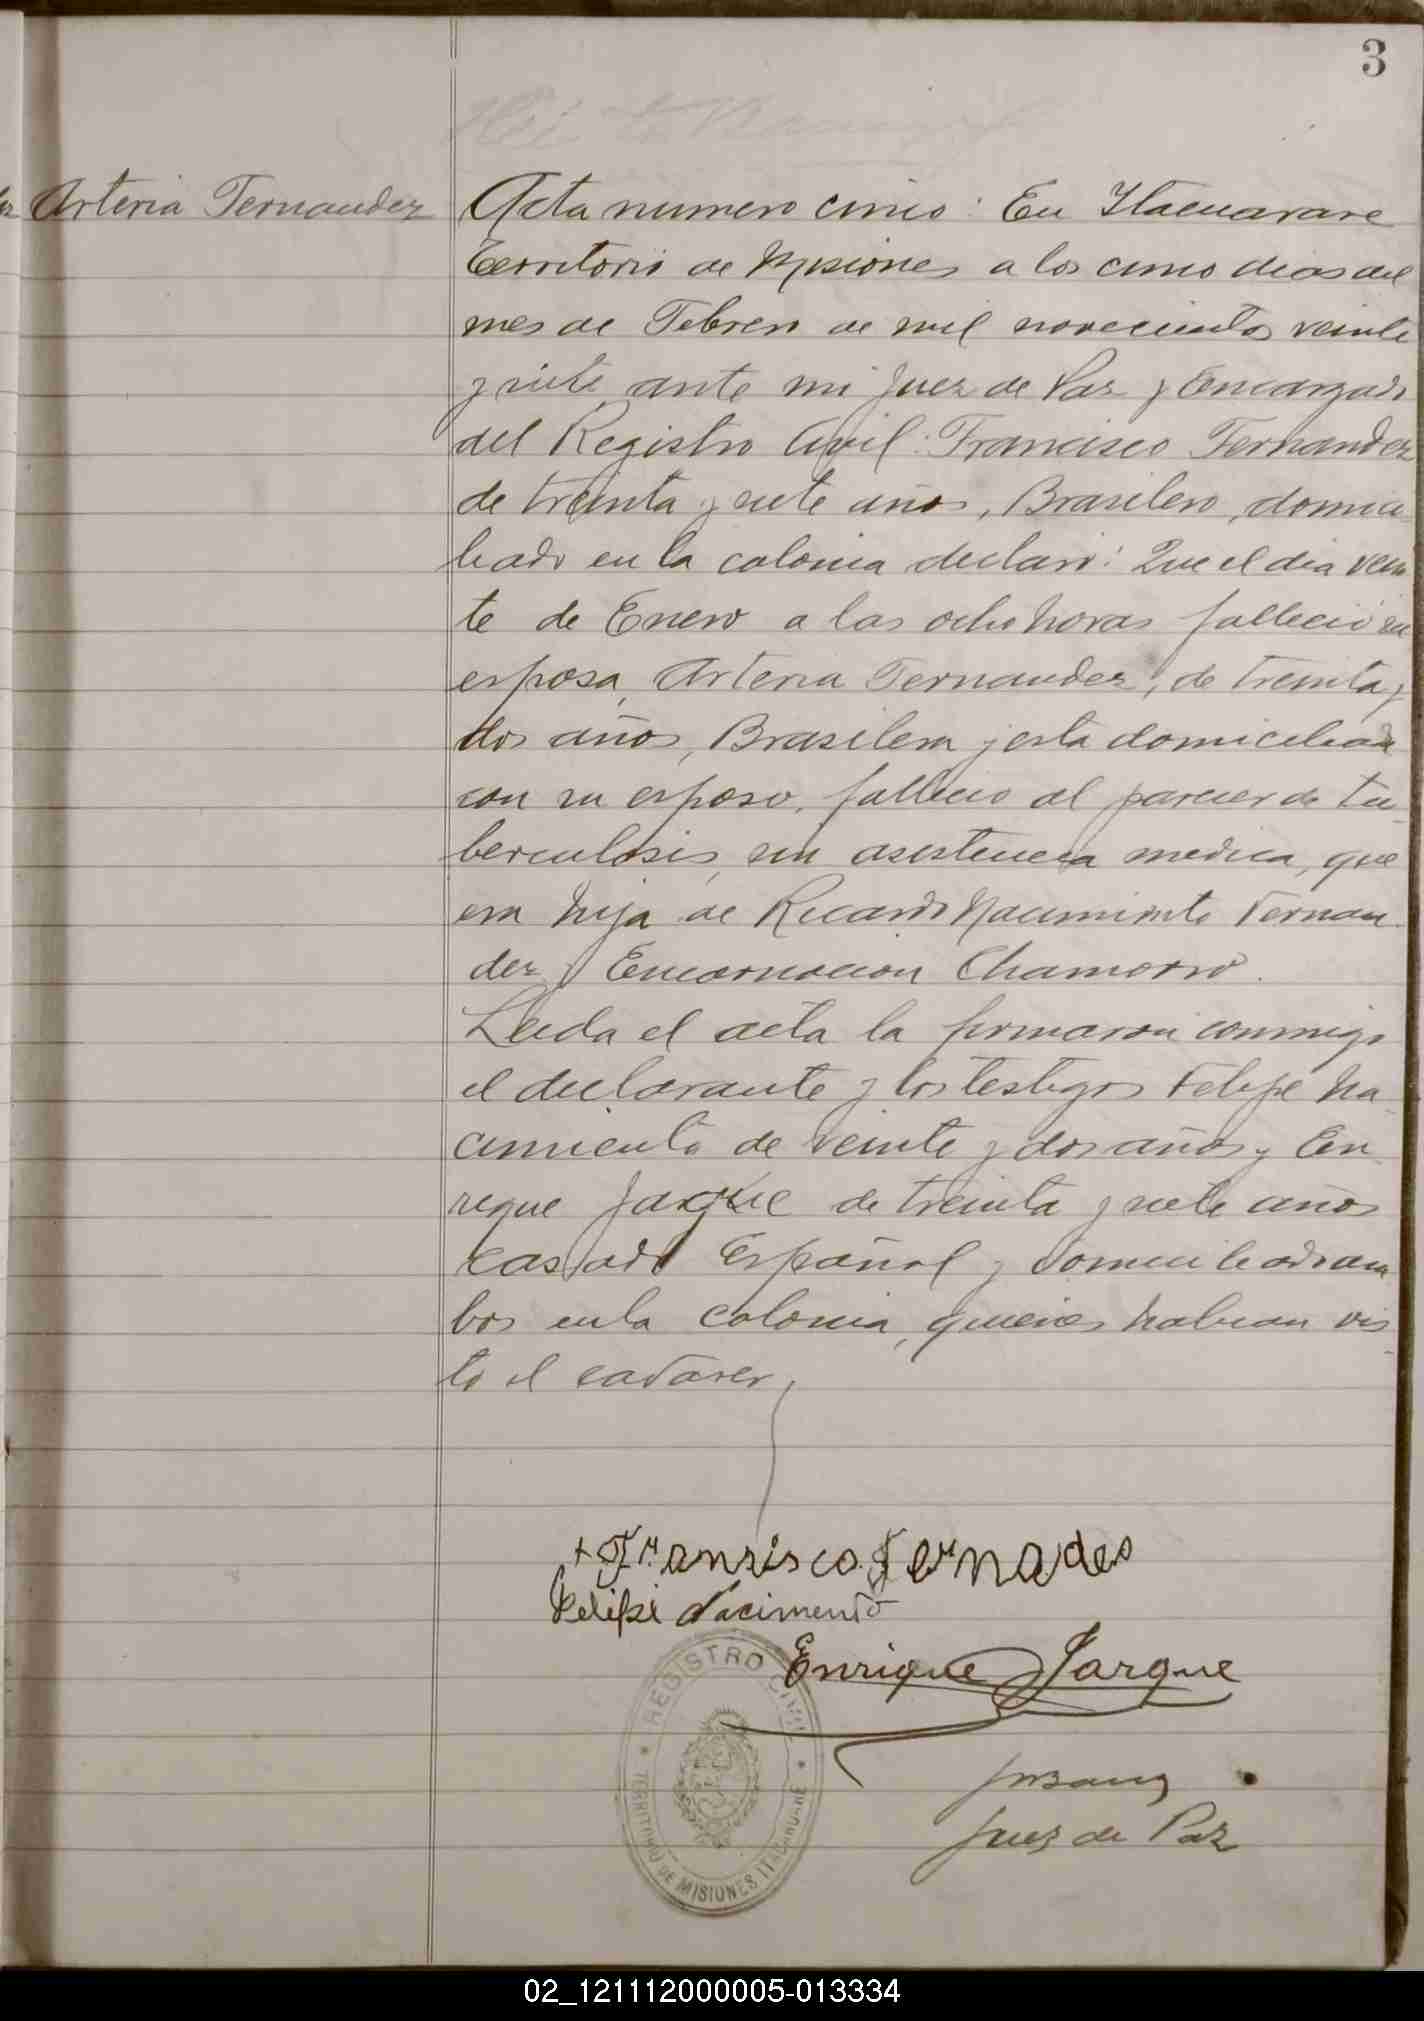 3
Arteria Fernandez
Acta numero cinco: En Itacuarare
Territorio de Misiones a los cinco dias del
mes de Febrero de mil novecientos veinte
y siete ante mi Juez de Paz y Encargado
del Registro Civil: Francisco Fernandez
de treinta y siete años, Brasilero, domici
liado en la colonia declaró: Que el dia vein
te de Enero a las ocho horas falleció su
esposa, Arteria Fernandez, de treinta y
dos años, Brasilera y esta domiciliada
con su esposo, fallecio al parecer de tu-
berculosis, sin asistencia medica, que
era hija de Ricardo Nacimiento Fernan-
dez y Encarnacion Chamorro.
Leida el acta la firmaron conmigo
el declarante y los testigos Felipe Na-
cimiento de veinte y dos años y En-
rique Jarque de treinta y siete años
casado Español y domiciliados am
bos en la colonia, quienes habian vis-
to el cadaver,
+ Fransisco Fernades
Felipe Nacimento
Enrique Jarque
Juez de Paz
REGISTRO CIVIL
TERRITORIO DE MISIONES ITACARUARE
02_121112000005-013334